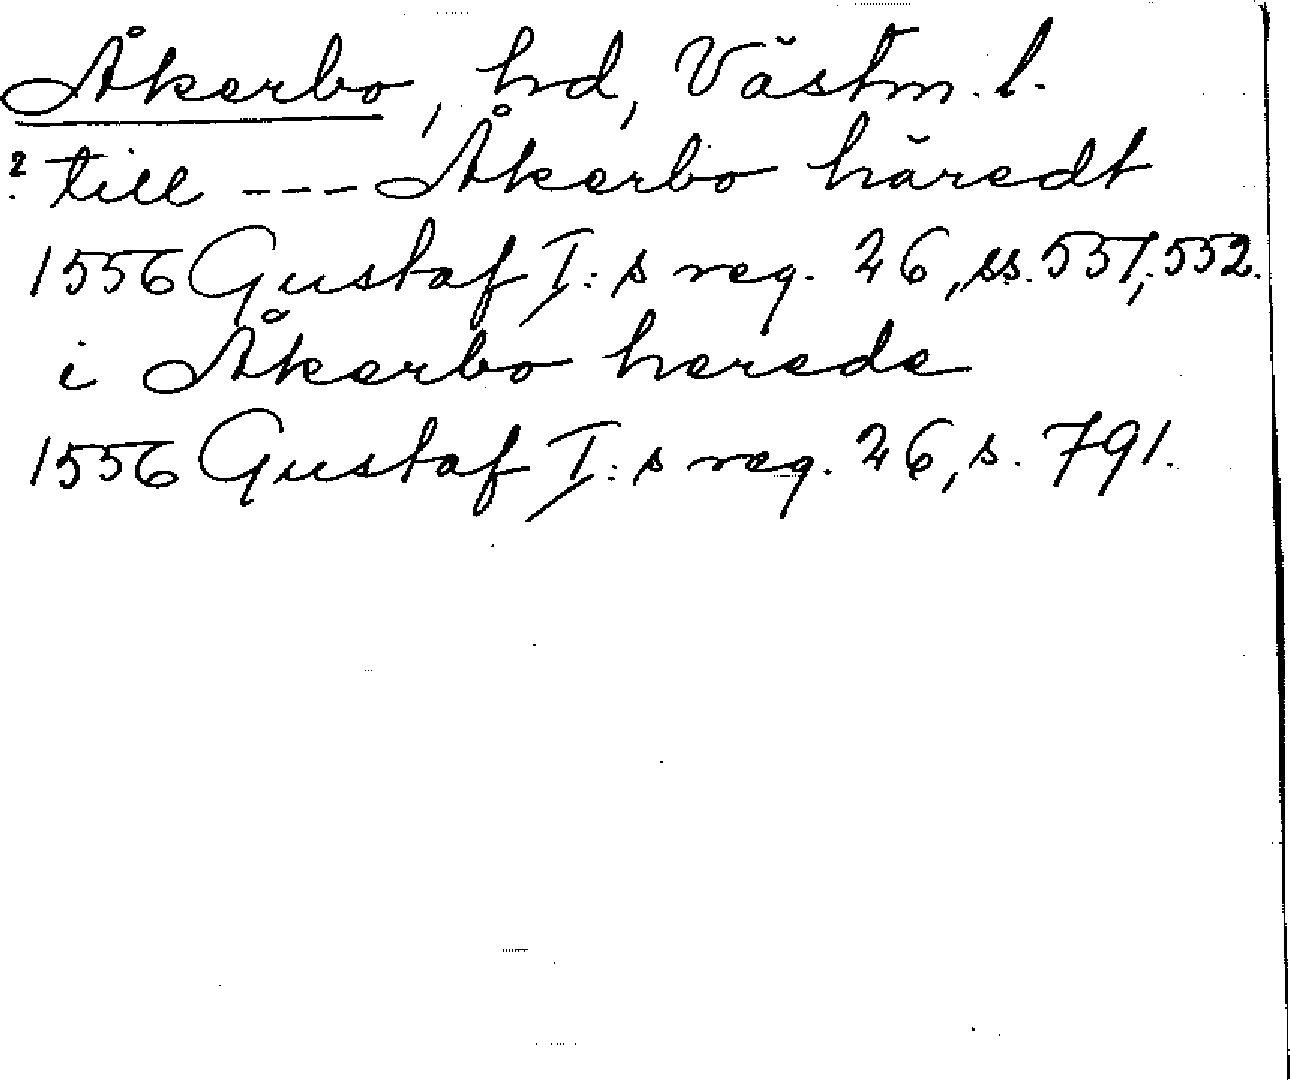 Åkerbo, hd, Västm. l.
? till --- Åkerbo häredt
1556 Gustaf I:s reg. 26, ss. 551, 552.
i Åkerbo herede
1556 Gustaf I:s reg. 26, s. 791.